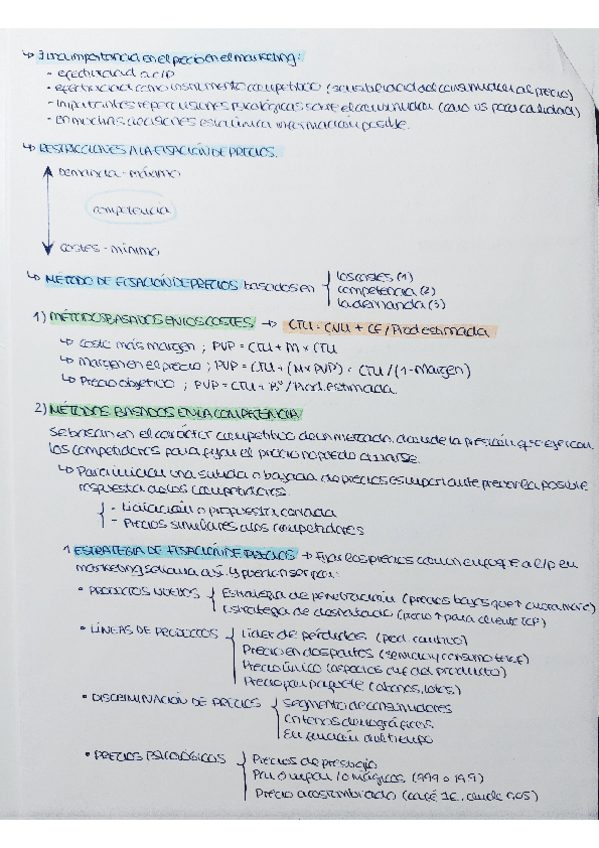 ↳ La importancia en el precio en el marketing:
- efectividad a c/p
- efectividad como instrumento competitivo (sensibilidad del consumidor al precio)
- Importantes repercusiones psicológicas sobre el consumidor (caro vs poca calidad)
- En muchas decisiones es la única información posible.
↳ RESTRICCIONES A LA FIJACIÓN DE PRECIOS.
Demanda - máximo
competencia
costes - mínimo
↳ MÉTODO DE FIJACIÓN DE PRECIOS basados en
los costes (1)
competencia (2)
la demanda (3)
1) MÉTODOS BASADOS EN LOS COSTES → CTU = CVU + CF / Prod estimada
↳ Coste más margen ; PVP = CTU + M x CTU
↳ Margen en el precio ; PVP = CTU + (M x PVP) = CTU / (1-Margen)
↳ Precio objetivo ; PVP = CTU + Bº / Prod. Estimada
2) MÉTODOS BASADOS EN LA COMPETENCIA
Se basan en el carácter competitivo de un mercado, donde la presión que ejercen
los competidores para fijar el precio no puede obviarse.
↳ Para iniciar una subida o bajada de precios es importante prever la posible
respuesta de los competidores.
- Licitación o propuesta cerrada
- Precios similares a los competidores
ESTRATEGIA DE FIJACIÓN DE PRECIOS → Fijar los precios con un enfoque a c/p en
marketing y pueden ser por:
• PRODUCTOS NUEVOS
Estrategia de penetración (precios bajos que ↑)
Estrategia de desnatado (precio ↑ para cliente TOP)
• LÍNEAS DE PRODUCTOS
Líder de pérdidas (prod. cautivo)
Precio en dos partes (servicio y consumo telef)
Precio único (aspectos del producto)
Precio por paquete (abonos, lotes)
• DISCRIMINACIÓN DE PRECIOS
Segmento de consumidores
Criterios demográficos
En función del tiempo
• PRECIOS PSICOLÓGICOS
Precios de prestigio
Par o impar / o mágicos (999 o 199)
Precio acostumbrado (café 1€, 0,05)